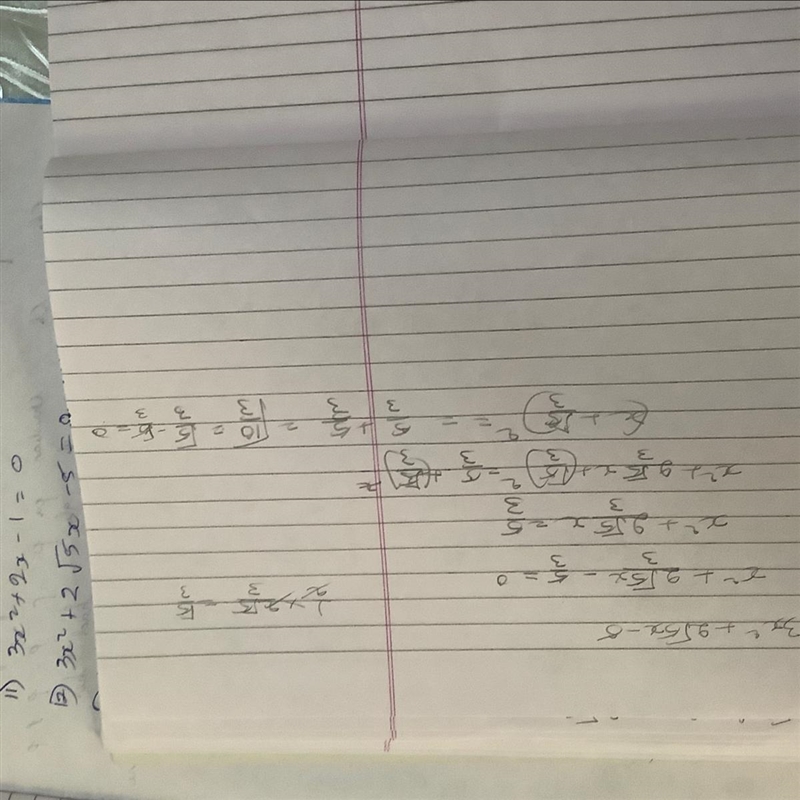 11) 3x² + 2x - 1 = 0
12) 3x² + 2√5x - 5 = 0
3x² + 2√5x - 5
x² + 2√5x/3 - 5/3 = 0
1/2 × 2√5/3 = √5/3
x² + 2√5/3 x = 5/3
x² + 2√5/3 x + (√5/3)² = 5/3 + (√5/3)²
(x + √5/3)² = = 5/3 + 5/3 = √10/3 = √5/3 - √5/3 = 0